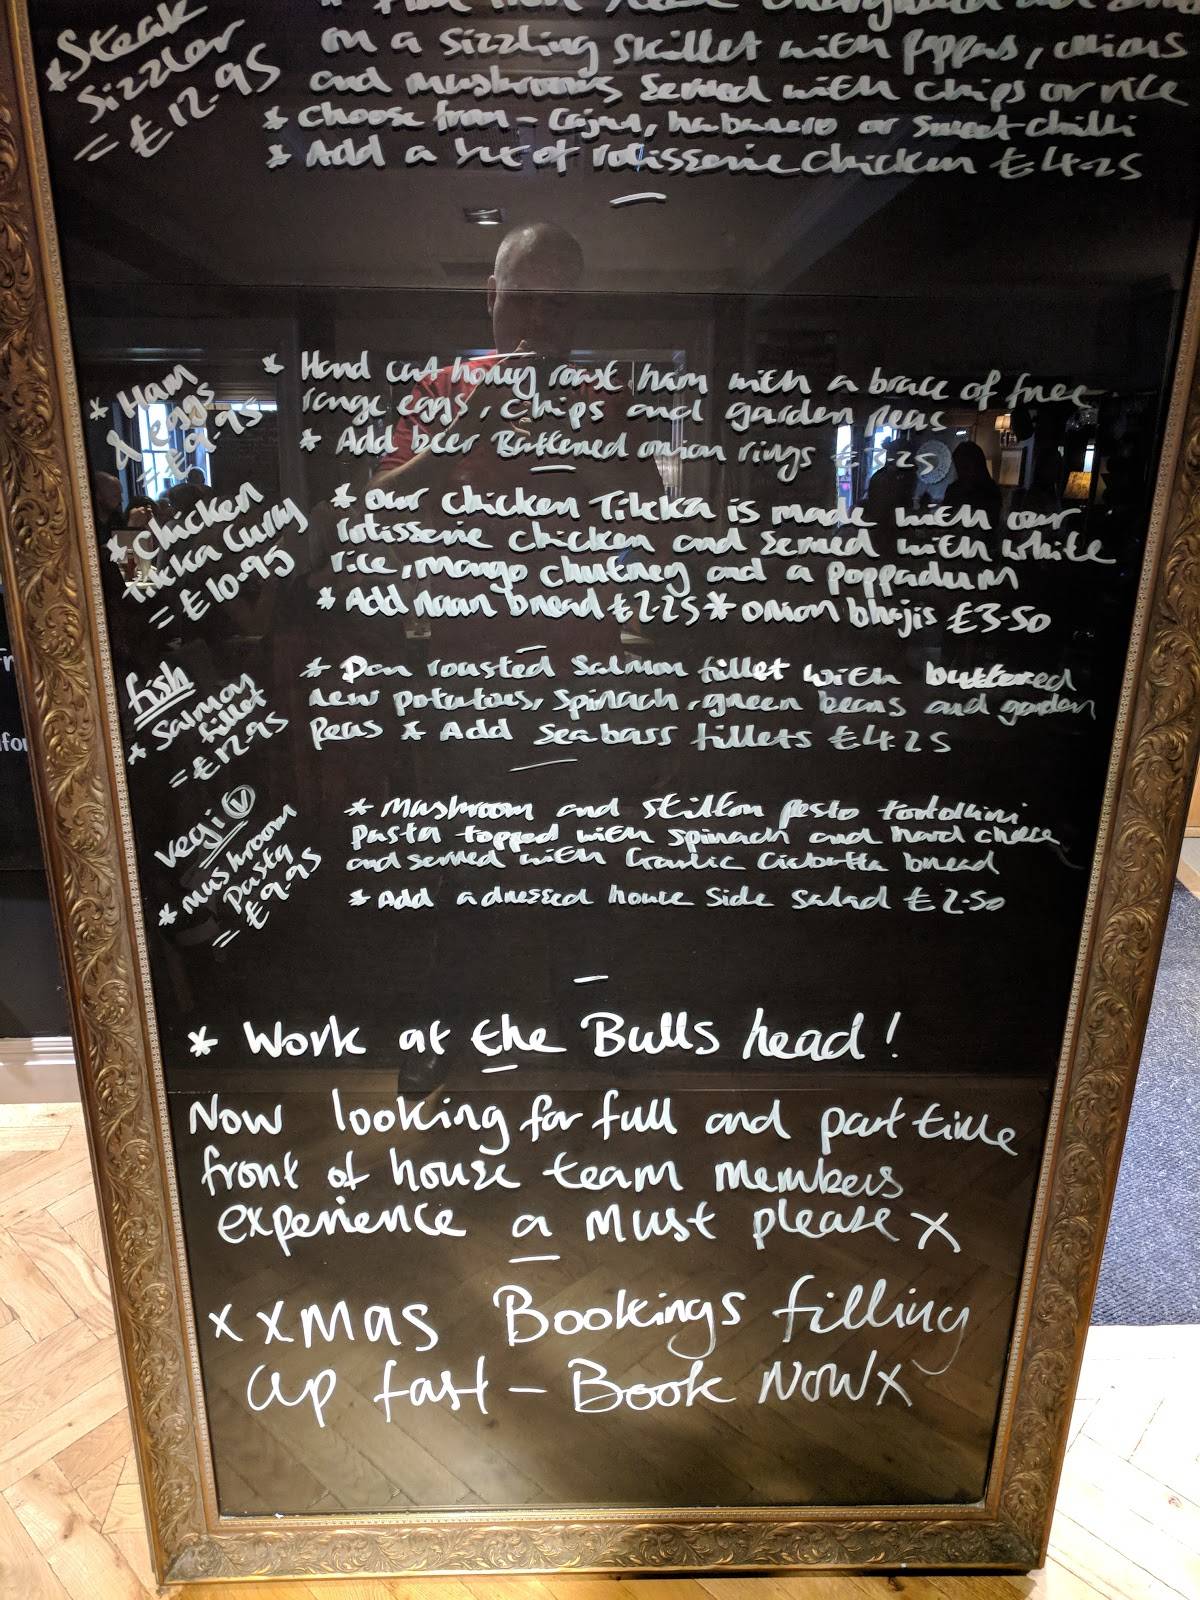 * Steak
Sizzler
= £12.95
on a sizzling skillet with peppers, onions
and mushrooms served with chips or rice
* Choose from - Cajun, habanero or sweet chilli
* Add a of rotisserie chicken £4.25
* Ham
& eggs
= £9.95
* Hand cut honey roast ham with a brace of free
range eggs, chips and garden peas
* Add beer Battered onion rings £3.25
* Chicken
tikka Curry
= £10.95
* Our chicken Tikka is made with our
rotisserie chicken and served with white
rice, mango chutney and a poppadum
* Add naan bread £2.25 * onion bhajis £3.50
fish
* Salmon
fillet
= £12.95
* Pan roasted Salmon fillet with buttered
new potatoes, spinach, green beans and garden
Peas * Add Seabass fillets £4.25
vegi V
* Mushroom
Pasta
= £9.95
* Mushroom and stilton pesto tortollini
pasta topped with spinach and hard cheese
and served with Garlic Ciabatta bread
* Add a dressed house side salad £2.50
* Work at the Bulls head!
Now looking for full and part time
front of house team members
experience a must please x
x xmas Bookings filling
up fast - Book Now x